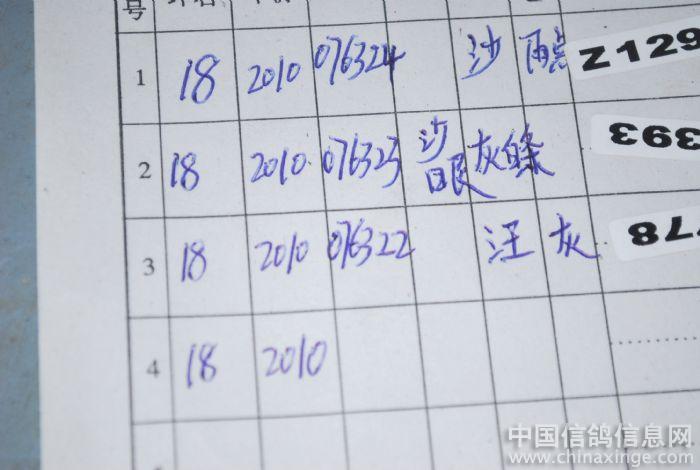 号
1 18 2010 076324 沙 雨点 Z129
2 18 2010 076323 沙眼 灰白条 393
3 18 2010 076322 汪 灰 78
4 18 2010
中国信鸽信息网
www.chinaxinge.com